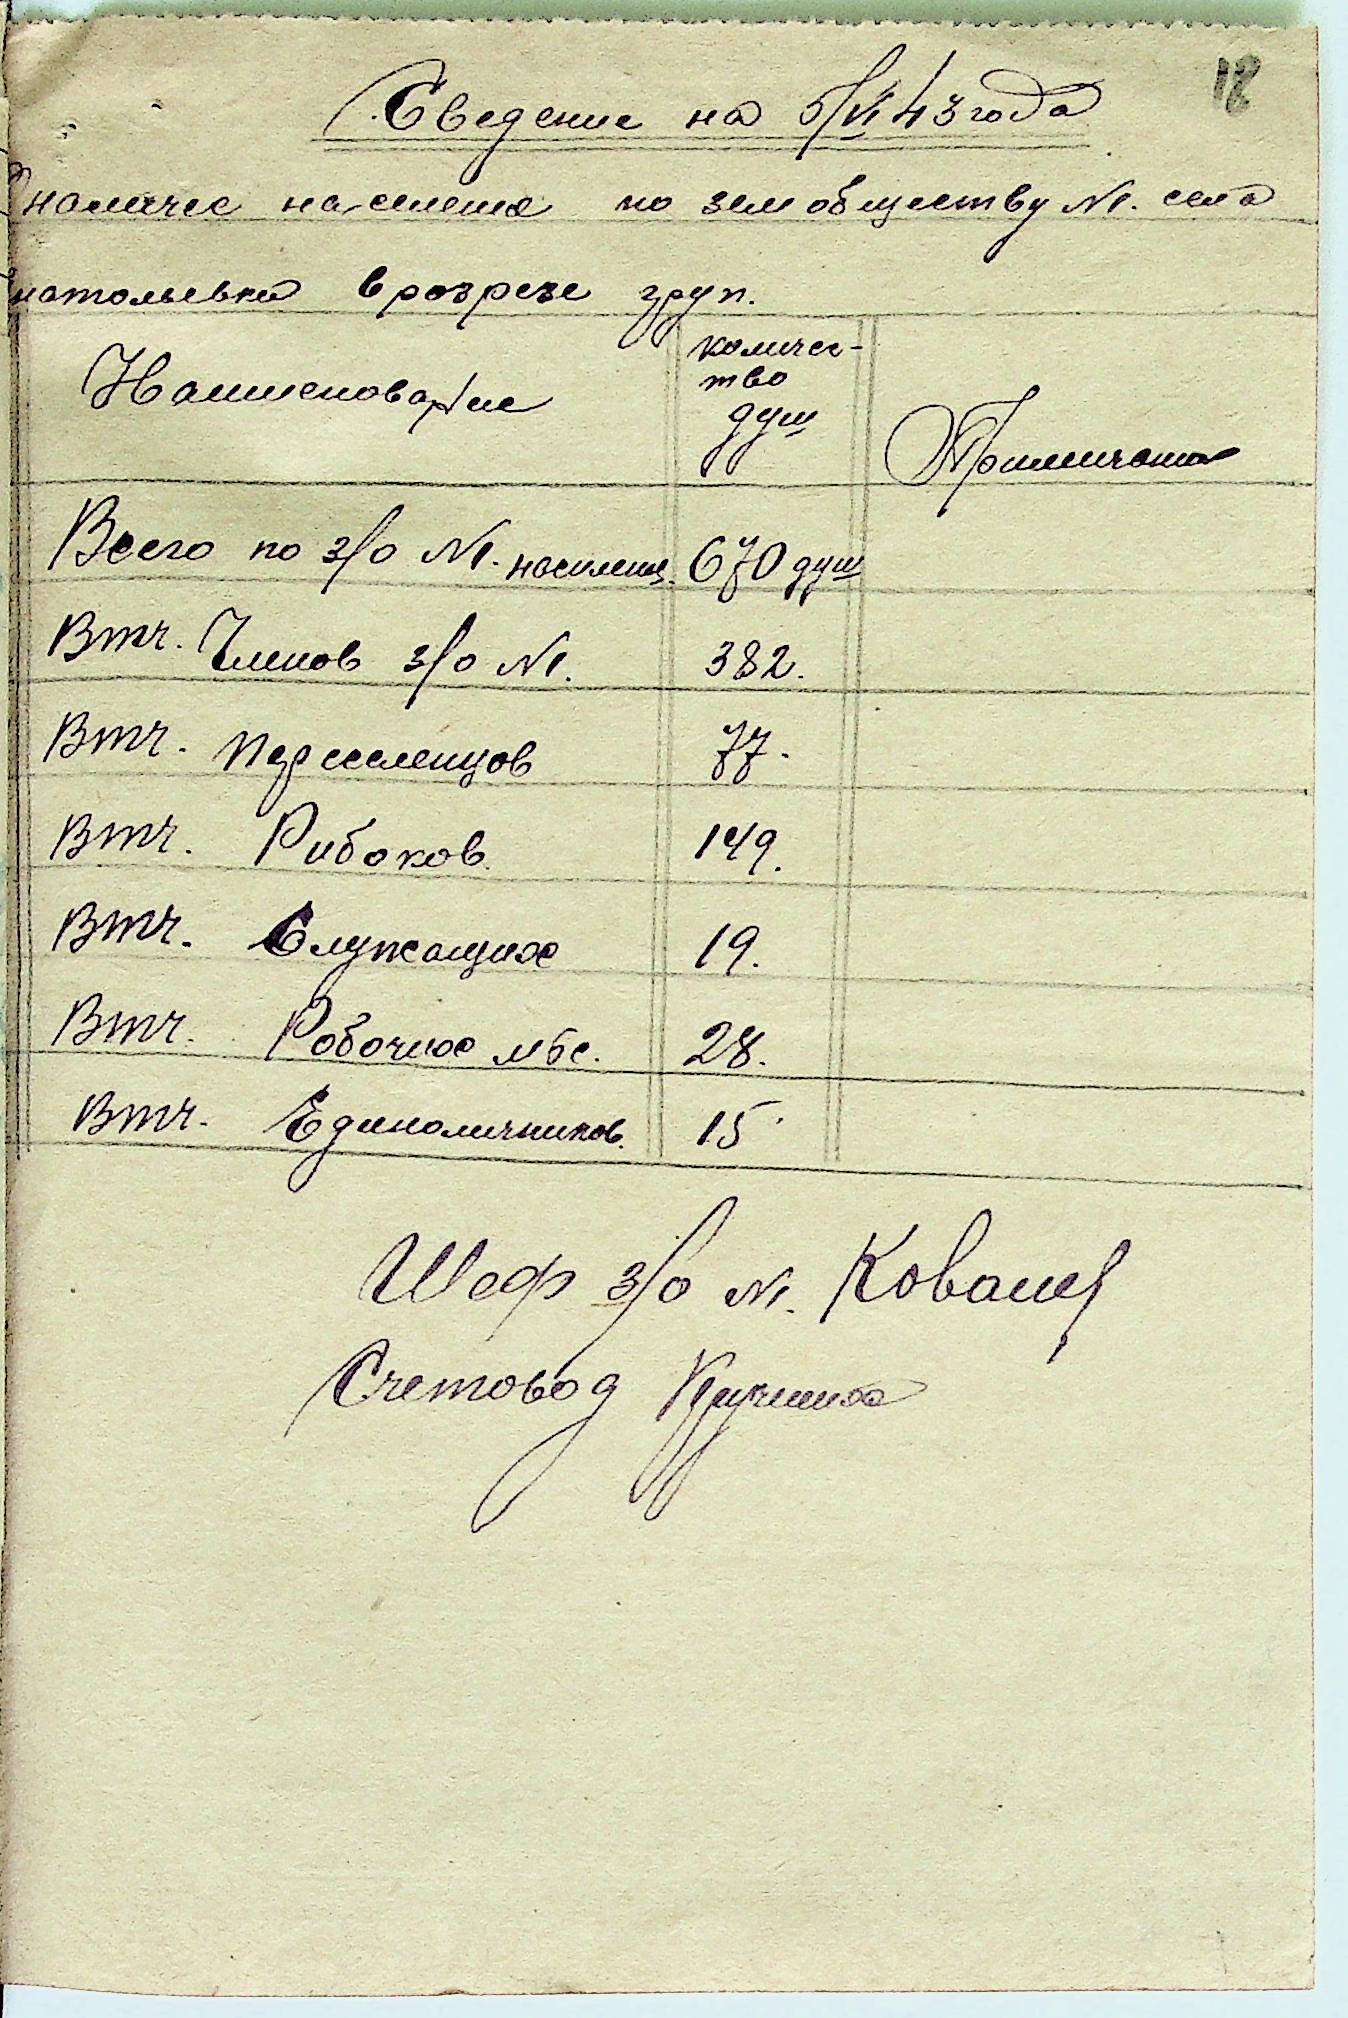 18
Сведение на 5/VI 43 года
О наличее населения по земобществу №1. села
натольевка в розрезе груп.
Наименование
количес-
тво
душ
Примичание
Всего по з/о №1. населения. 670 душ
Втч. Членов з/о №1. 382.
Втч. Переселенцов 77.
Втч. Рибоков. 149.
Втч. Служащих 19.
Втч. Робочих мбс. 28.
Втч. Единоличников. 15
Шеф з/о №1. Ковалев
Счетовод